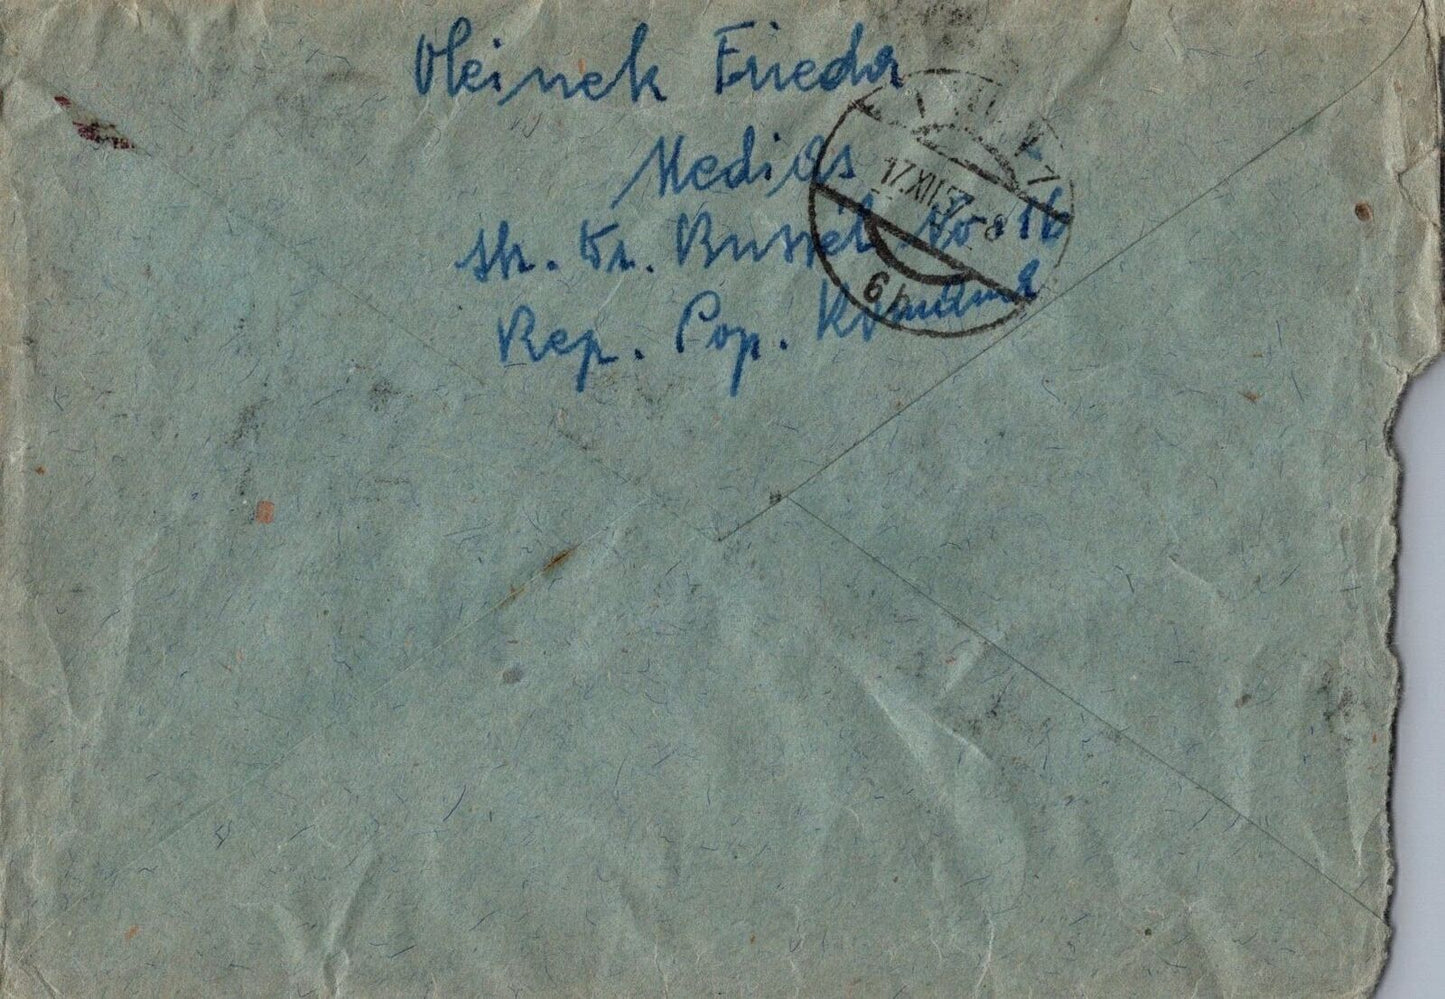 Oleinek Frieda
Medias
str. Dr. Russel No 16
Rep. Pop. Romîna
17.XII.57-8